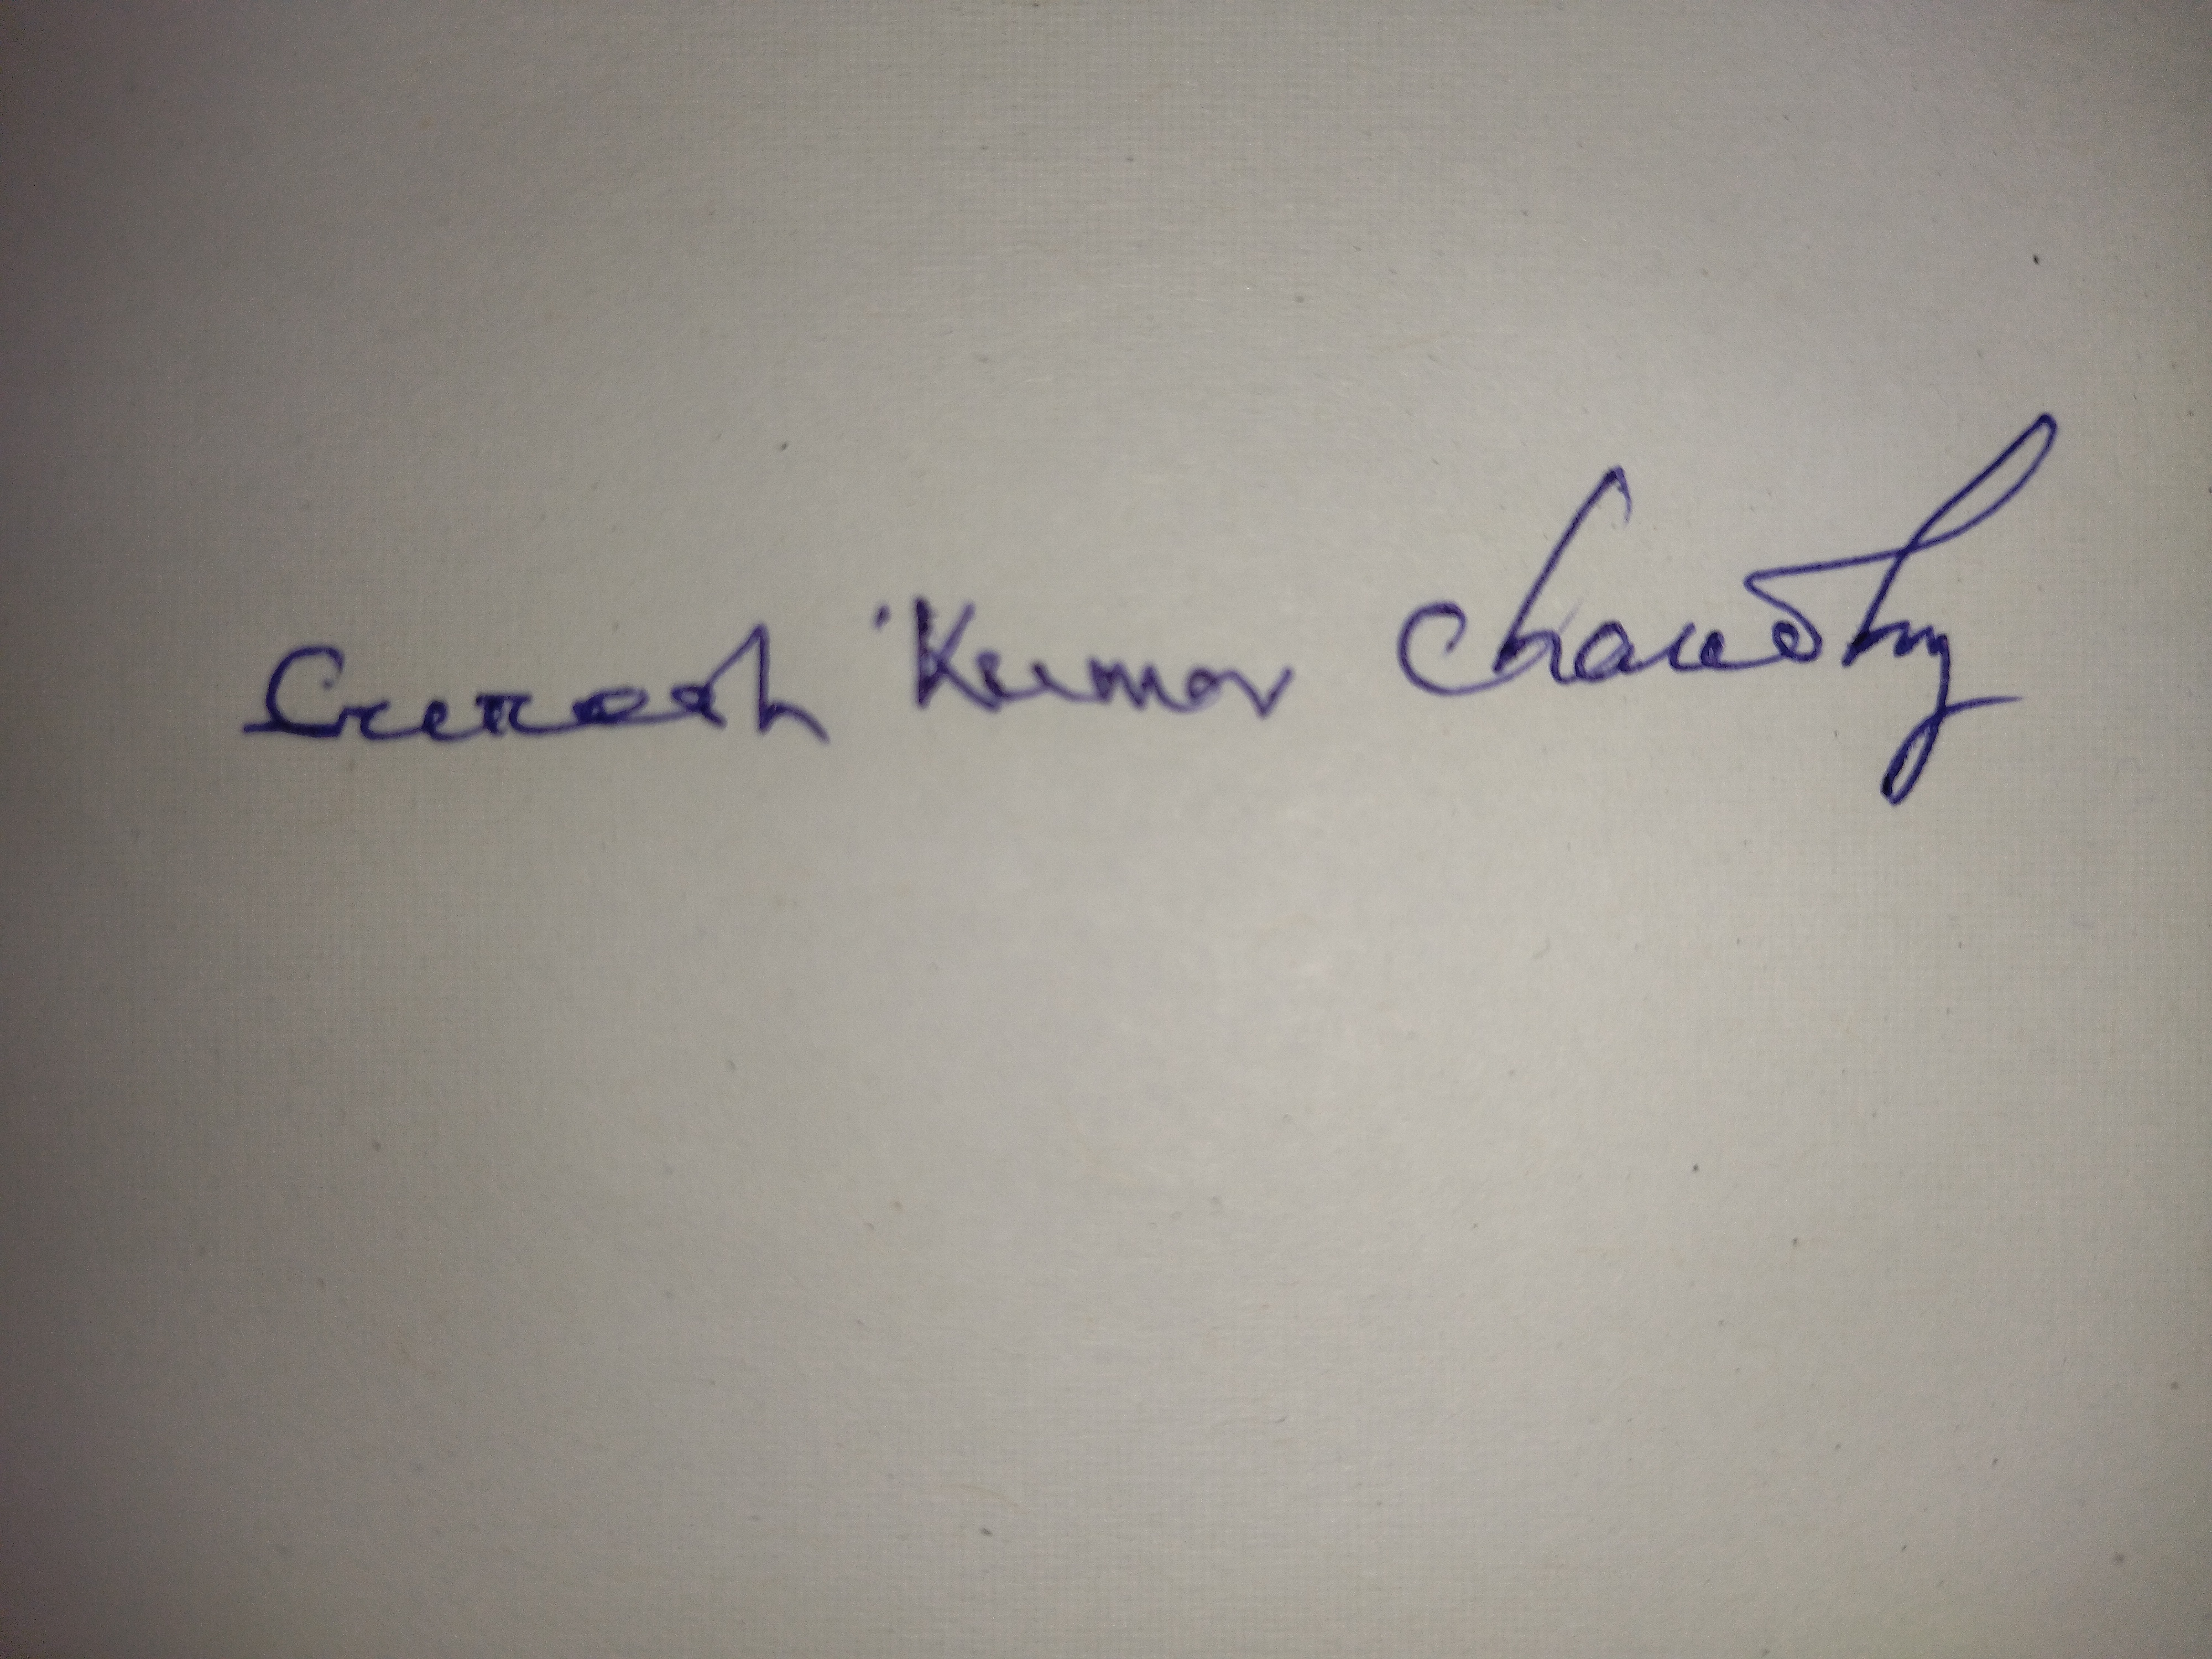 Suresh Kumar Chaudhry